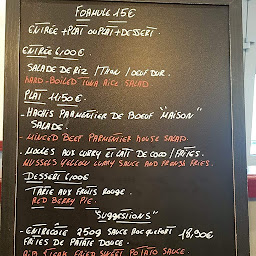 FORMULE 15€
ENTRÉE + PLAT OU PLAT + DESSERT
ENTRÉE 6,00€
SALADE DE RIZ / THON / OEUF DUR.
HARD-BOILED TUNA RICE SALAD.
PLAT 11.50€
- HACHIS PARMENTIER DE BOEUF "MAISON"
SALADE.
- MINCED BEEF PARMENTIER HOUSE SALAD.
- MOULES AUX CURRY ET LAIT DE COCO / FRITES.
MUSSELS YELLOW CURRY SAUCE AND FRENCH FRIES.
DESSERT 6,00€
TARTE AUX FRUITS ROUGE.
RED BERRY PIE.
"SUGGESTIONS"
- ENTRECÔTE 250g SAUCE ROQUEFORT 18,90€
FRITES DE PATATE DOUCE.
STEAK FRIED SWEET POTATO SAUCE